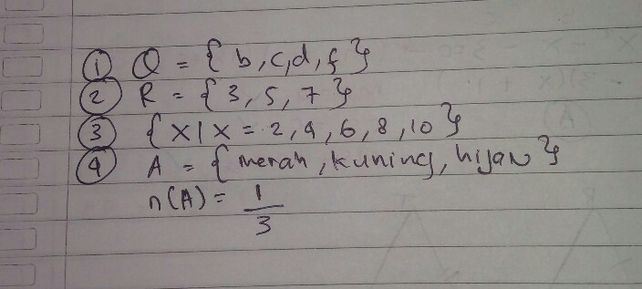 ① Q = { b, c, d, f }
② R = { 3, 5, 7 }
③ { x | x = 2, 4, 6, 8, 10 }
④ A = { merah, kuning, hijau }
n(A) = 1/3